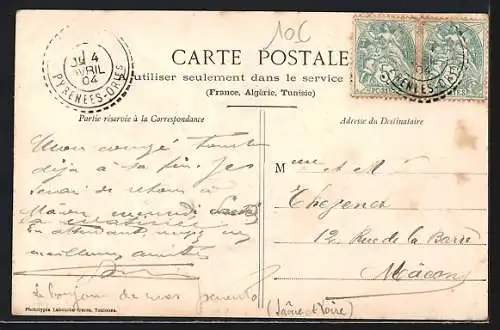 10c
CARTE POSTALE
utiliser seulement dans le service
(France, Algérie, Tunisie)
4
AVRIL
04
PYRENEES-OR
Partie réservée à la Correspondance
Adresse du Destinataire
Mon congé
déjà à sa fin. Je
serai de retour à
Mâcon mercredi
la matinée
En attendant
meilleures amitiés
Le bonjour de mes parents
Mme et M
Thezenet
12, Rue de la Barre
Mâcon
(Saône et Loire)
Phototypie Labouche frères, Toulouse.